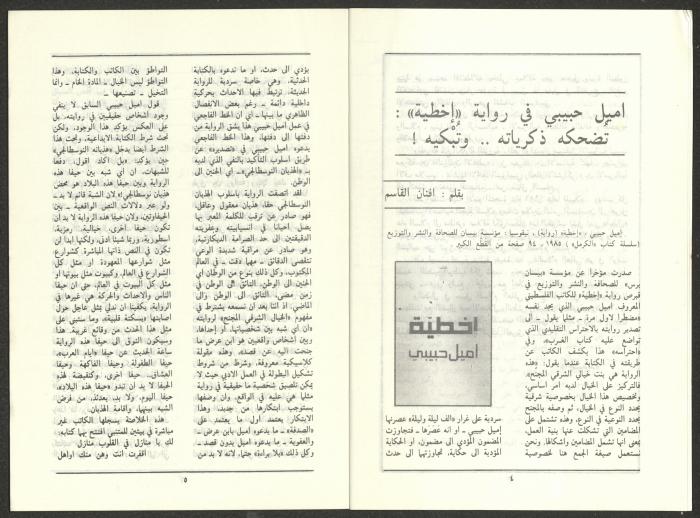 اميل حبيبي في رواية «إخطية» :
تُضحكه ذكرياته .. وتُبْكيه !
بقلم : افنان القاسم
إميل حبيبي ، «إخطية (رواية) ، نيقوسيا : مؤسسة بيسان للصحافة والنشر والتوزيع
(سلسلة كتاب «الكرمل» ) ١٩٨٥، ٩٤ صفحة من القطع الكبير
صدرت مؤخرا عن مؤسسة «بيسان
برس» للصحافة والنشر والتوزيع في
قبرص رواية «إخطية» للكاتب الفلسطيني
المعروف اميل حبيبي الذي يجد نفسه
«مضطرا لاول مرة ـ مثلما يقول ـ الى
تصدير روايته بالاحتراس التقليدي الذي
تواضع عليه كتاب الغرب»، وفي
«احتراسه» هذا يكشف الكاتب عن
طريقته في الكتابة عندما يقول: «هذه
الرواية هي بنت خيالي الشرقي المجنح».
فالتركيز على الخيال لديه امر اساسي،
وتخصيص هذا الخيال بخصوصية شرقية
يحدد النوع في الخيال، ثم وصفه بالمجنح
يحدد النوعية في النوع، وهذه تشتمل على
المضامين التي تشكلت عنها بنية العمل،
بمعنى انها تشمل المضامين واشكالها. ونحن
نستعمل صيغة الجمع هنا لخصوصية
اخطيّة
اميل حبيبي
سردية على غرار «الف ليلة وليلة» عصرنها
إميل حبيبي ـ او انه عَصَرَها ـ فتجاوزت
المضمون المؤدي الى مضمون، او الحكاية
المؤدية الى حكاية، تجاوزتهما الى حدث
٤
يؤدي الى حدث، او ما ندعوه بالكتابة
الحدثية. وهي خاصة سردية للرواية
الحديثة، ترتبط فيها الاحداث بحركية
داخلية دائمة ـ رغم بعض الانفصال
الظاهري ما بينها ـ اي ان الخط الفاجعي
في عمل اميل حبيبي هذا يشق الرواية من
دفتها الى دفتها، وهذا الخط الفاجعي
يدعوه اميل حبيبي في «تصديره» عن
طريق اسلوب التأكيد بالنفي الذي لديه
بـ «الهذيان النوسطالجي» ـ الحنين الى
الوطن.
لقد اتصفت الرواية باسلوب الهذيان
النوسطالجي حقا، هذيان معقول وعاقل،
فهو صادر عن ترقب للكلمة المعبر بها
يصل احيانا في انسيابيته وعفويته
الدقيقتين الى حد الصرامة الديكارتية،
وهو صادر عن مراقبة شديدة الوعي
تتقصى الدقائق ـ مهما دقت ـ في العالم
المكتوب، وكل ذلك ينوع من الوطان اي
الحنين الى الوطن، التائق الى الوطن في
زمن مضى، التائق الى الوطن والى
الماضي. اذ اننا بعد ان نسمعه يشترط في
مفهوم «الخيال الشرقي المجنح» لروايته
«ان اي شبه بين شخصياتها، او احداها،
وبين اشخاص واقعيين هو ابن عرض ما
جنحت اليه عن قصد»، وهذه مقولة
كلاسيكية معروفة، وشرط من شروط
تشكيل البطولة في العمل الادبي حيث لا
يمكن تلصيق شخصية ما حقيقية في رواية
مثلما هي عليه في الواقع، وان وصفها
يستوجب ابتكارها من جديد، وهذا
الابتكار يعتمد اول ما يعتمد على
«الصدفة» ـ ما يدعوه اميل بابن عرض ـ
والعفوية ـ ما يدعوه اميل بدون قصد ـ
وكل ذلك «بلا براءة» جئتم، لانه لا بد من
التواطؤ بين الكاتب والكتابة، وهذا
التواطؤ ليس الخيال ـ المادة الخام ـ وانما
التخيل ـ تصنيعها ـ
قول اميل حبيبي السابق لا ينفي
وجود اشخاص حقيقيين في روايته، بل
على العكس يؤكد هذا الوجود، ولكن
تحت شرط الكتابة الابداعية، وتحت هذا
الشرط ايضا يدخل «هذيانه النوسطالجي»
حين يؤكد: «بل اكاد اقول، دفعا
للشبهات، ان اي شبه بين حيفا هذه
الرواية وبين حيفا هذه البلاد هو محض
هذيان نوسطالجي» لان الشبه قائم لا بد ـ
ولو عبر دلالات النص الواقعية ـ بين
الحيفاوتين، ولان حيفا هذه الرواية لا بد ان
تكون حيفا اخرى، خيالية، رمزية،
اسطورية، وربما شيئا ادق، ولكنها ابدا لن
تكون في النص ذاتها المباشرة كشوارع
مثل شوارعها المعهودة او مثل كل
الشوارع في العالم، وكبيوت مثل بيوتها او
مثل كل البيوت في العالم، حتى ان حيفا
الناس والاحداث والحركة هي غيرها في
الرواية. يكفينا ان ندلي بمثل عاجل حول
اصابتها «بسكتة قلبية»، وما ستبنى على
مثل هذا الحدث من وقائع غريبة. هذا
وسيكون التوق الى حيفا هذه الرواية
ساعة الحديث عن حيفا «ايام العرب»،
حيفا الطفولة وحيفا الفاكهة وحيفا
العشاق، حيفا اخرى، وكنقيضة لهذه
الحيفا لا بد ان تبدو «حيفا هذه البلاد»،
حيفا اليوم، ولا بد، بعدئذ، من فرض
الشبه بينهما، واقامة الهذيان.
هذه الخلاصة يسجلها الكاتب غير
مباشرة في بيتين للمتنبي افتتح بهما كتابه:
لك يا منازل في القلوب منازل
اقفرت انت وهن منك اواهل
٥